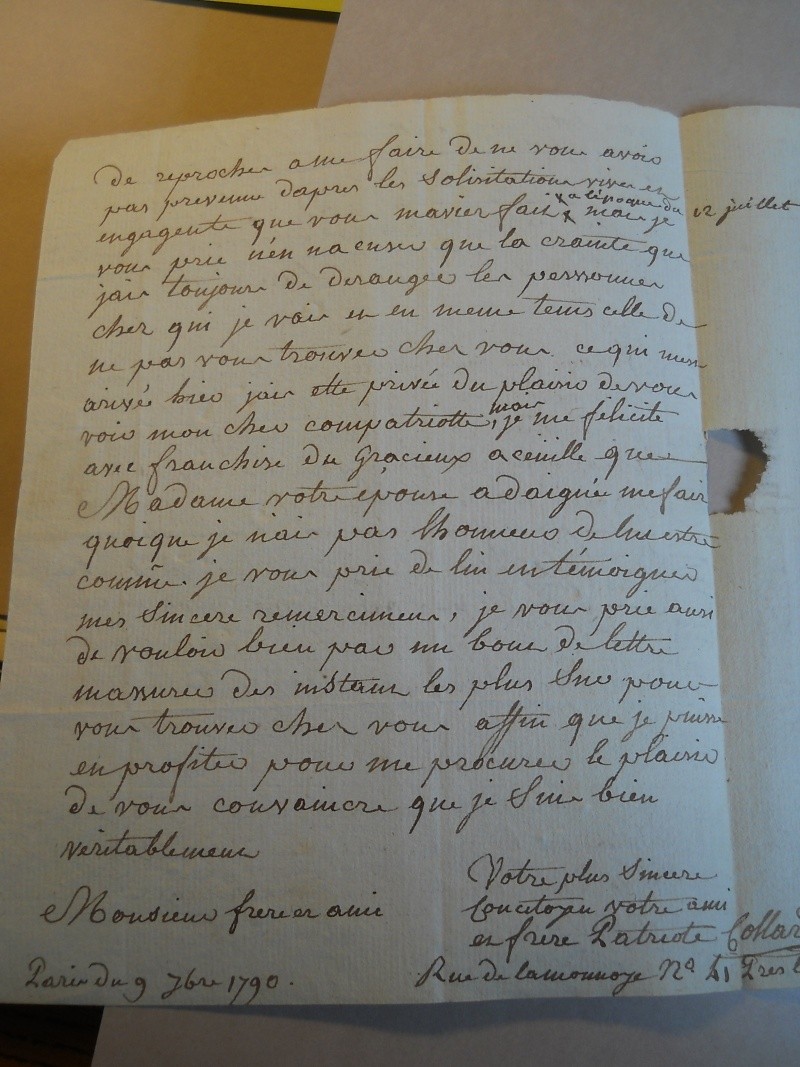 De reprocher a me faire de ne vous avois
pas prevenue daprès les solisitations vives et
engagente que vous maviez fait a lépoque du 12 juillet mais je
vous prie n'en nacuser que la crainte que
jais toujours de deranger les perssonnes
chez qui je vais et en meme tems celle de
ne pas vous trouver chez vous ce qui mest
arivée hier jais etté privée du plaisir de vous
voir mon cher compatriotte, mais je me félicite
avec franchise du Gracieux aceuille que
Madame votre épouse a daignée me fair
quoique je n'ais pas lhonneur de lui estre
comme je vous prie de lui en témoigner
mes sincere remerciment, je vous prie aussi
de vouloir bien par un bout de lettre
massurer des instant les plus sur pour
vous trouver chez vous affin que je puisse
en profiter pour me procurer le plaisir
de vous convaincre que je suis bien
véritablement
Votre plus sincere
Monsieur frere et ami
Concitoyen votre ami
et frère Patriote Collar
Paris du 9 7bre 1790.
Rue de la monnoye Nº 41 Pres l